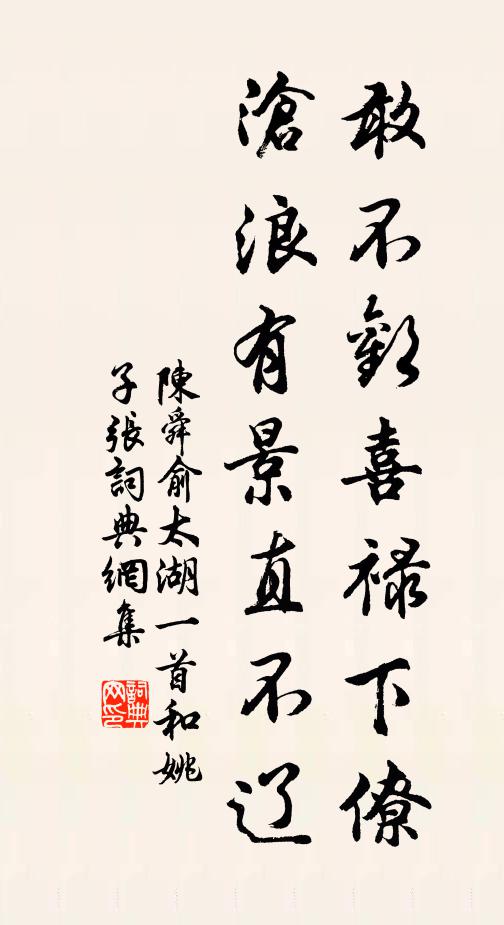 敢不歡喜祿下僚
滄浪有景直不辽
陳舜俞太湖一首和姚
子張詞典網集
詞典网印